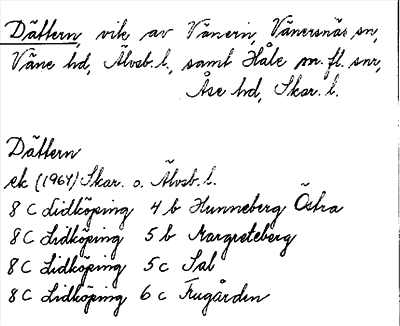 Dättern, vik av Vänern, Vänersnäs sn,
Väne hd, Älvsb. l., samt Håle m. fl. snr,
Åse hd, Skar. l.
Dättern
ek (1964) Skar. o. Älvsb. l.
8 C Lidköping 4 b Hunneberg Östra
8 C Lidköping 5 b Margreteberg
8 C Lidköping 5 c Sal
8 C Lidköping 6 c Frugården